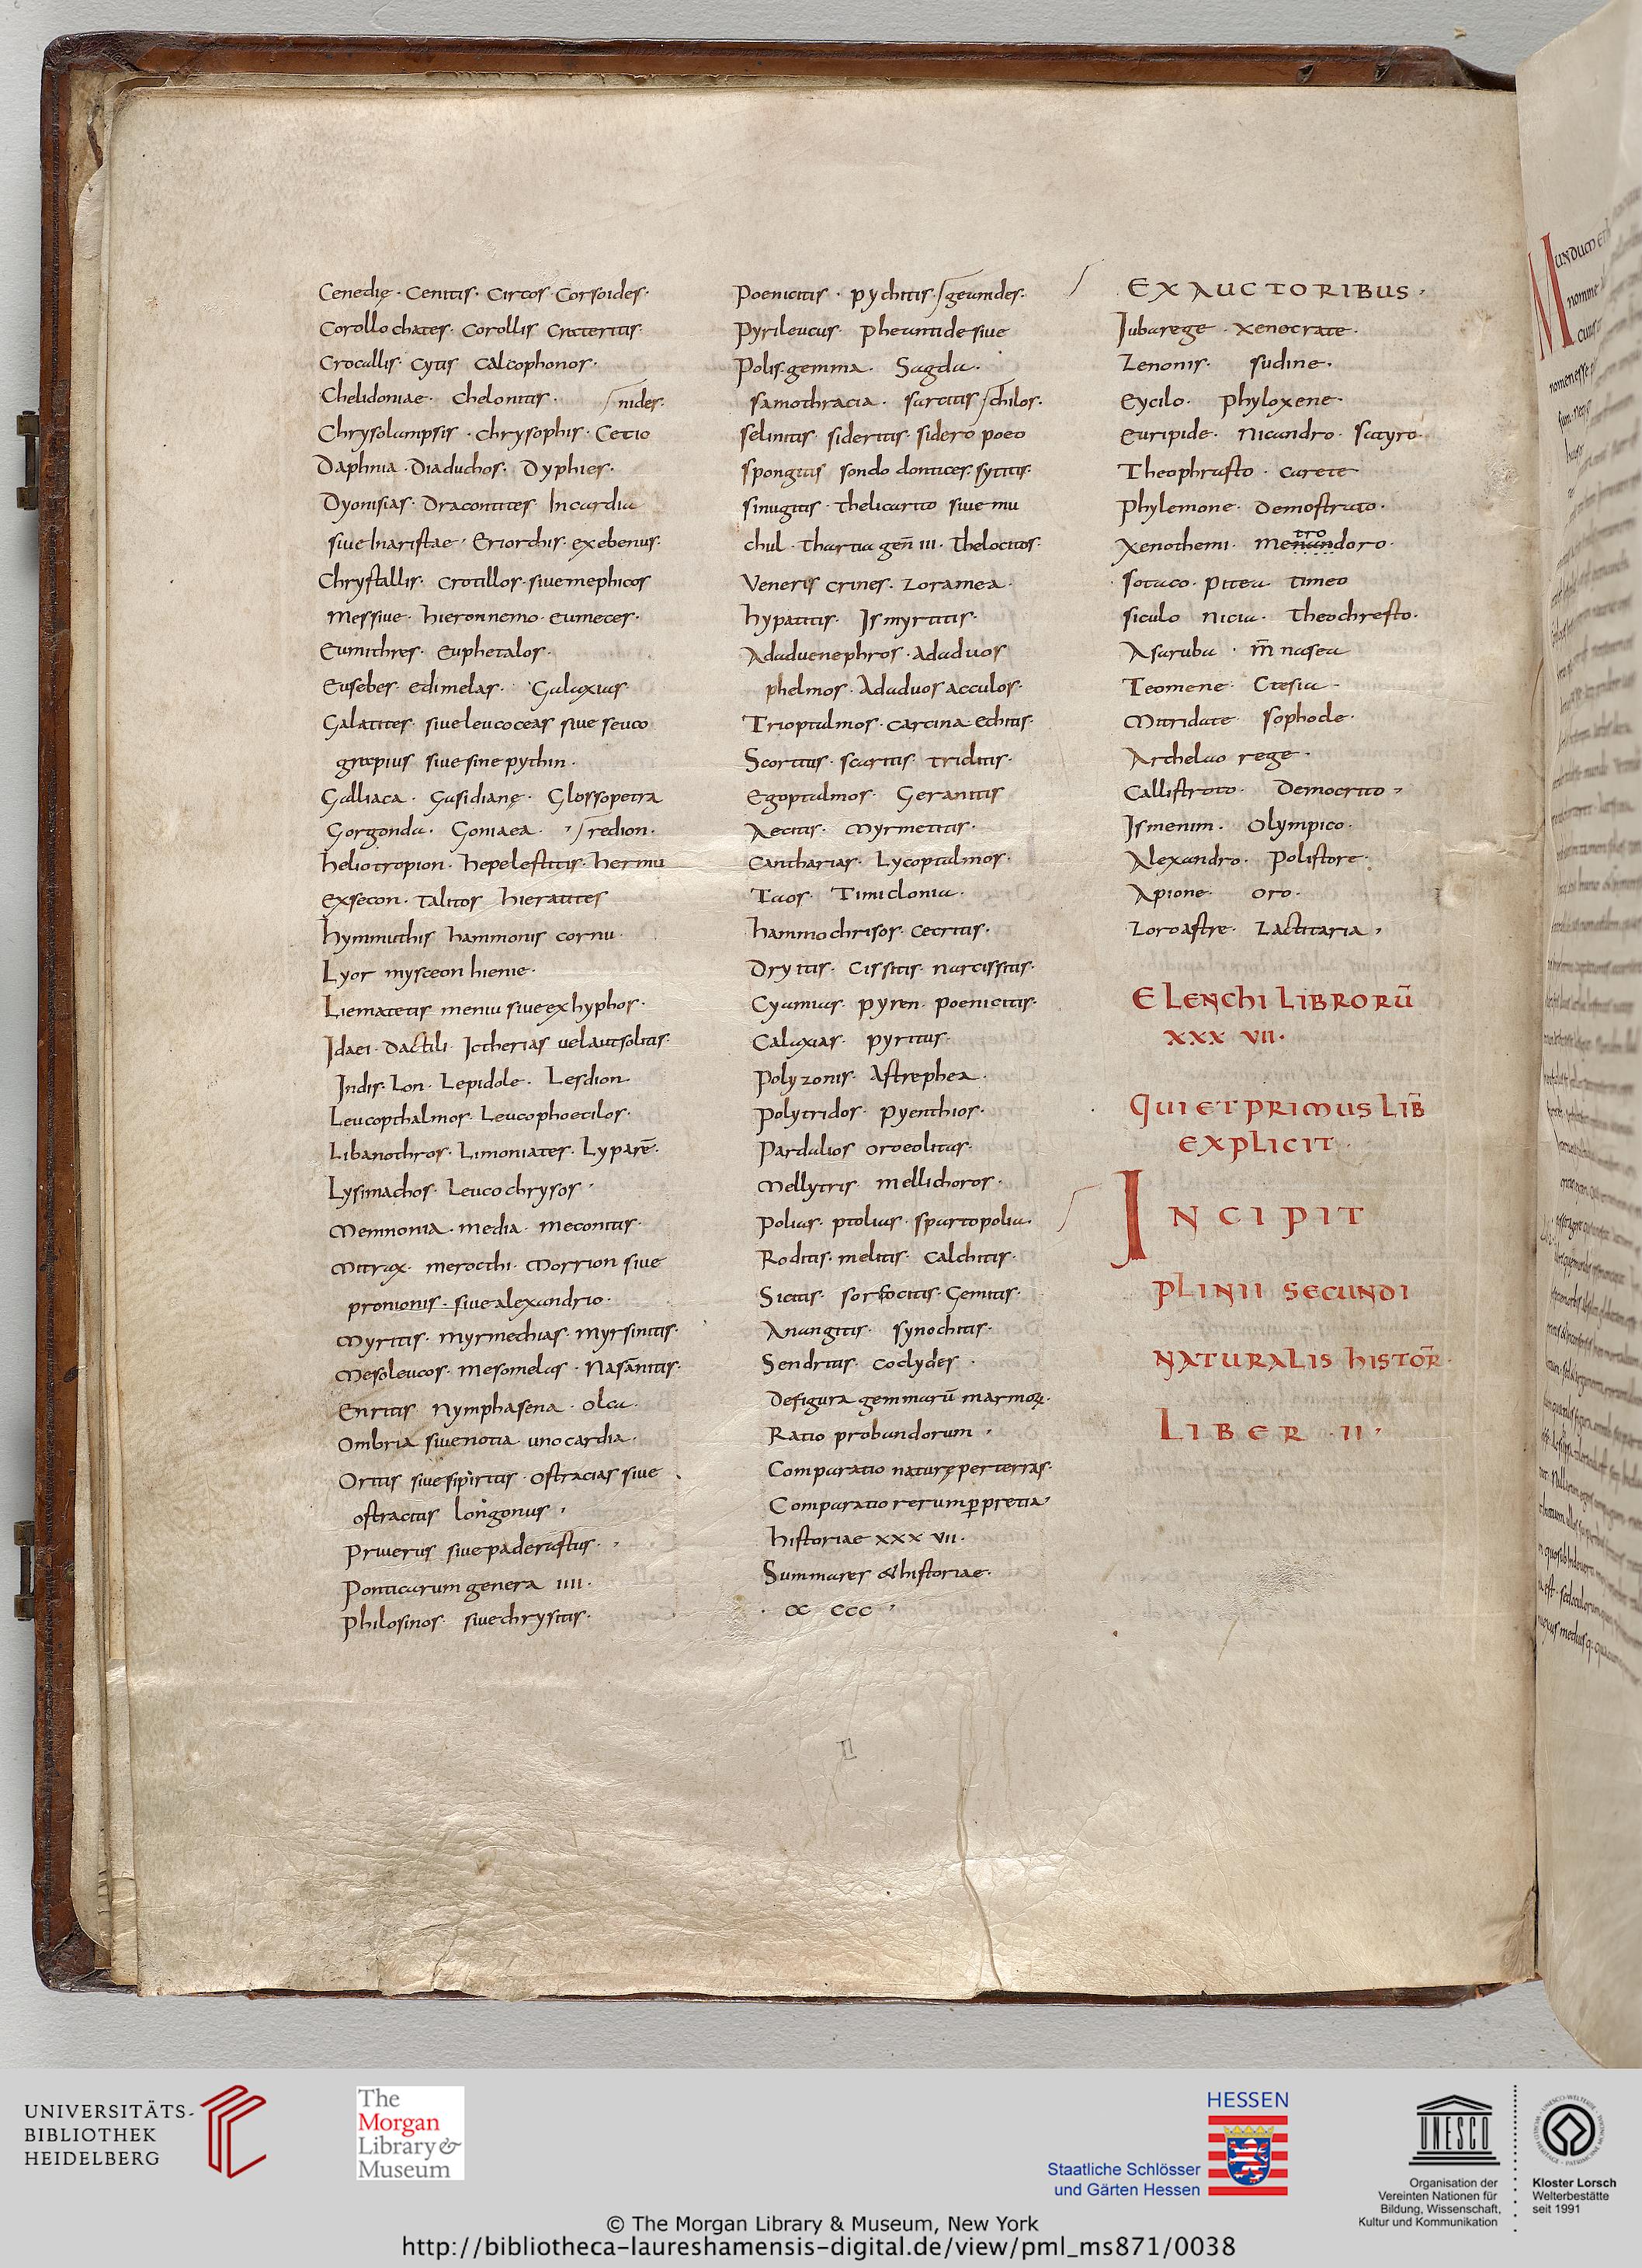 Cenedię · Cenitis · Circos · Corsoides ·
Corollochates · Corollis Crateritis ·
Crocallis · Cytis Calcophonos ·
Chelidoniae · Chelonitis · nides ·
Chrysolampsis · Chrysophis · Cetio
Daphnia · Diaduchos · Dyphies ·
Dyonisias · Dracontites Incardia
siue Inaristae · Eriorchis · exebenus ·
Chrystallis · Crotillos · siue mephicos
messiue · hieronnemo · eumeces ·
Eumithres · Euphetalos ·
Euseber · edimelas · Galaxias
Galatites · siue leucoceas siue seuco
grapius siue sine pythin ·
Galliaca · Gasidianę · Glossopetra
Gorgonda · Goniaea · redion ·
heliotropion · hepelestitis · hermu
exsecon · Talitos hieratites
hymmuthis hammonis cornu ·
Lyor mysceon hienie ·
Liematetis meniu siue exhyphos ·
Idaei · Dactili · Ictherias uel autsolitis ·
Indis · Lon · Lepidole · Lesdion
Leucopthalmos · Leucophoecilos ·
Libanothros · Limoniates · Lyparē ·
Lysimachos · Leucochrysos ·
Memnonia · media · meconitis ·
Mitrax · merocthi · Morrion siue
pronionis · siue alexandrio ·
Myritis · myrmechias · myrsinitis ·
Mesoleucos · mesomelas · Nasānitis ·
Enritis Nymphasena · Olca ·
Ombria siue notia unocardia ·
Oritis siue sipiritis · Ostracias siue
ostracitis longonus ·
Priuerus siue paderastus ·
Ponticarum genera IIII ·
Philosinos siue chrysitis ·
Poenicitis · pychitis · geunides ·
Pyrileucus · Pheuntide siue
Polis gemma · Sagda ·
samothracia · sarcitis chilos ·
selinitis · sideritis · sidero poeo
spongitis sondo dontices · sytitis ·
sinugitis · thelicartio siue mu
chul · Thartia geñ III · thelocitos ·
Veneris crines · Zoramea ·
hypatitis · Ismyrtitis ·
Aduduenephros · Aduduos
phelmos · Aduduos acculos ·
Trioptalmos · Carcina · Echitis ·
Scortitis · scaritis triditis ·
Egoptalmos · Geranitis
Aecitis · Myrmetitis ·
Cantharias · Lycoptalmos ·
Taos · Timiclonia ·
hammochrisos · Cecritis ·
Dryitis · Cissitis · narcissitis ·
Cyamias · pyren · poenicitis ·
Calaxias · pyritis ·
Polyzonis · Astrephea ·
Polytridos · pyenthios ·
Pardalios oroeolitus ·
Mellytris mellichoros ·
Polias · ptolias · spartopolia ·
Roditis · melitis · Calchitis ·
Sicitis · sorfocitis · Gemitis ·
Anangitis · synochitis ·
Sendritis · coclydes ·
De figura gemmarū marmoꝝ ·
Ratio probandorum ·
Comparatio naturę per terras ·
Comparatio rerum ꝑ pretia
historiae XXX VII ·
Summares & historiae ·
· ∝ CCC ·
EX AUCTORIBUS ·
Iuba rege · Xenocrate ·
Zenonis · sudine ·
Eycilo · Phyloxene ·
Euripide · Nicandro · satyro ·
Theophrasto · carete
Phylemone · Demostrato ·
tro
Xenothemi · Menandoro ·
sotaco · pitea timeo
siculo nicia · Theochresto ·
Asaruba · m̄nasea
Teomene · Ctesia ·
Mitridate · sophocle ·
Archelao rege ·
Callistrato · Democrito ·
Ismenim · Olympico ·
Alexandro · Polistore ·
Apione · Oro ·
Zoroastre · Zactitaria ·
ELENCHI LIBRORŪ
XXX VII ·
QUI ET PRIMUS LIB̄
EXPLICIT ·
INCIPIT
PLINII SECUNDI
NATURALIS HISTOR̄ ·
LIBER · II ·
II
MUNDUM ET
nomine
UNIVERSITÄTS-
BIBLIOTHEK
HEIDELBERG
The
Morgan
Library &
Museum
HESSEN
Staatliche Schlösser
und Gärten Hessen
UNESCO
Organisation der
Vereinten Nationen für
Bildung, Wissenschaft,
Kultur und Kommunikation
Kloster Lorsch
Welterbestätte
seit 1991
© The Morgan Library & Museum, New York
http://bibliotheca-laureshamensis-digital.de/view/pml_ms871/0038